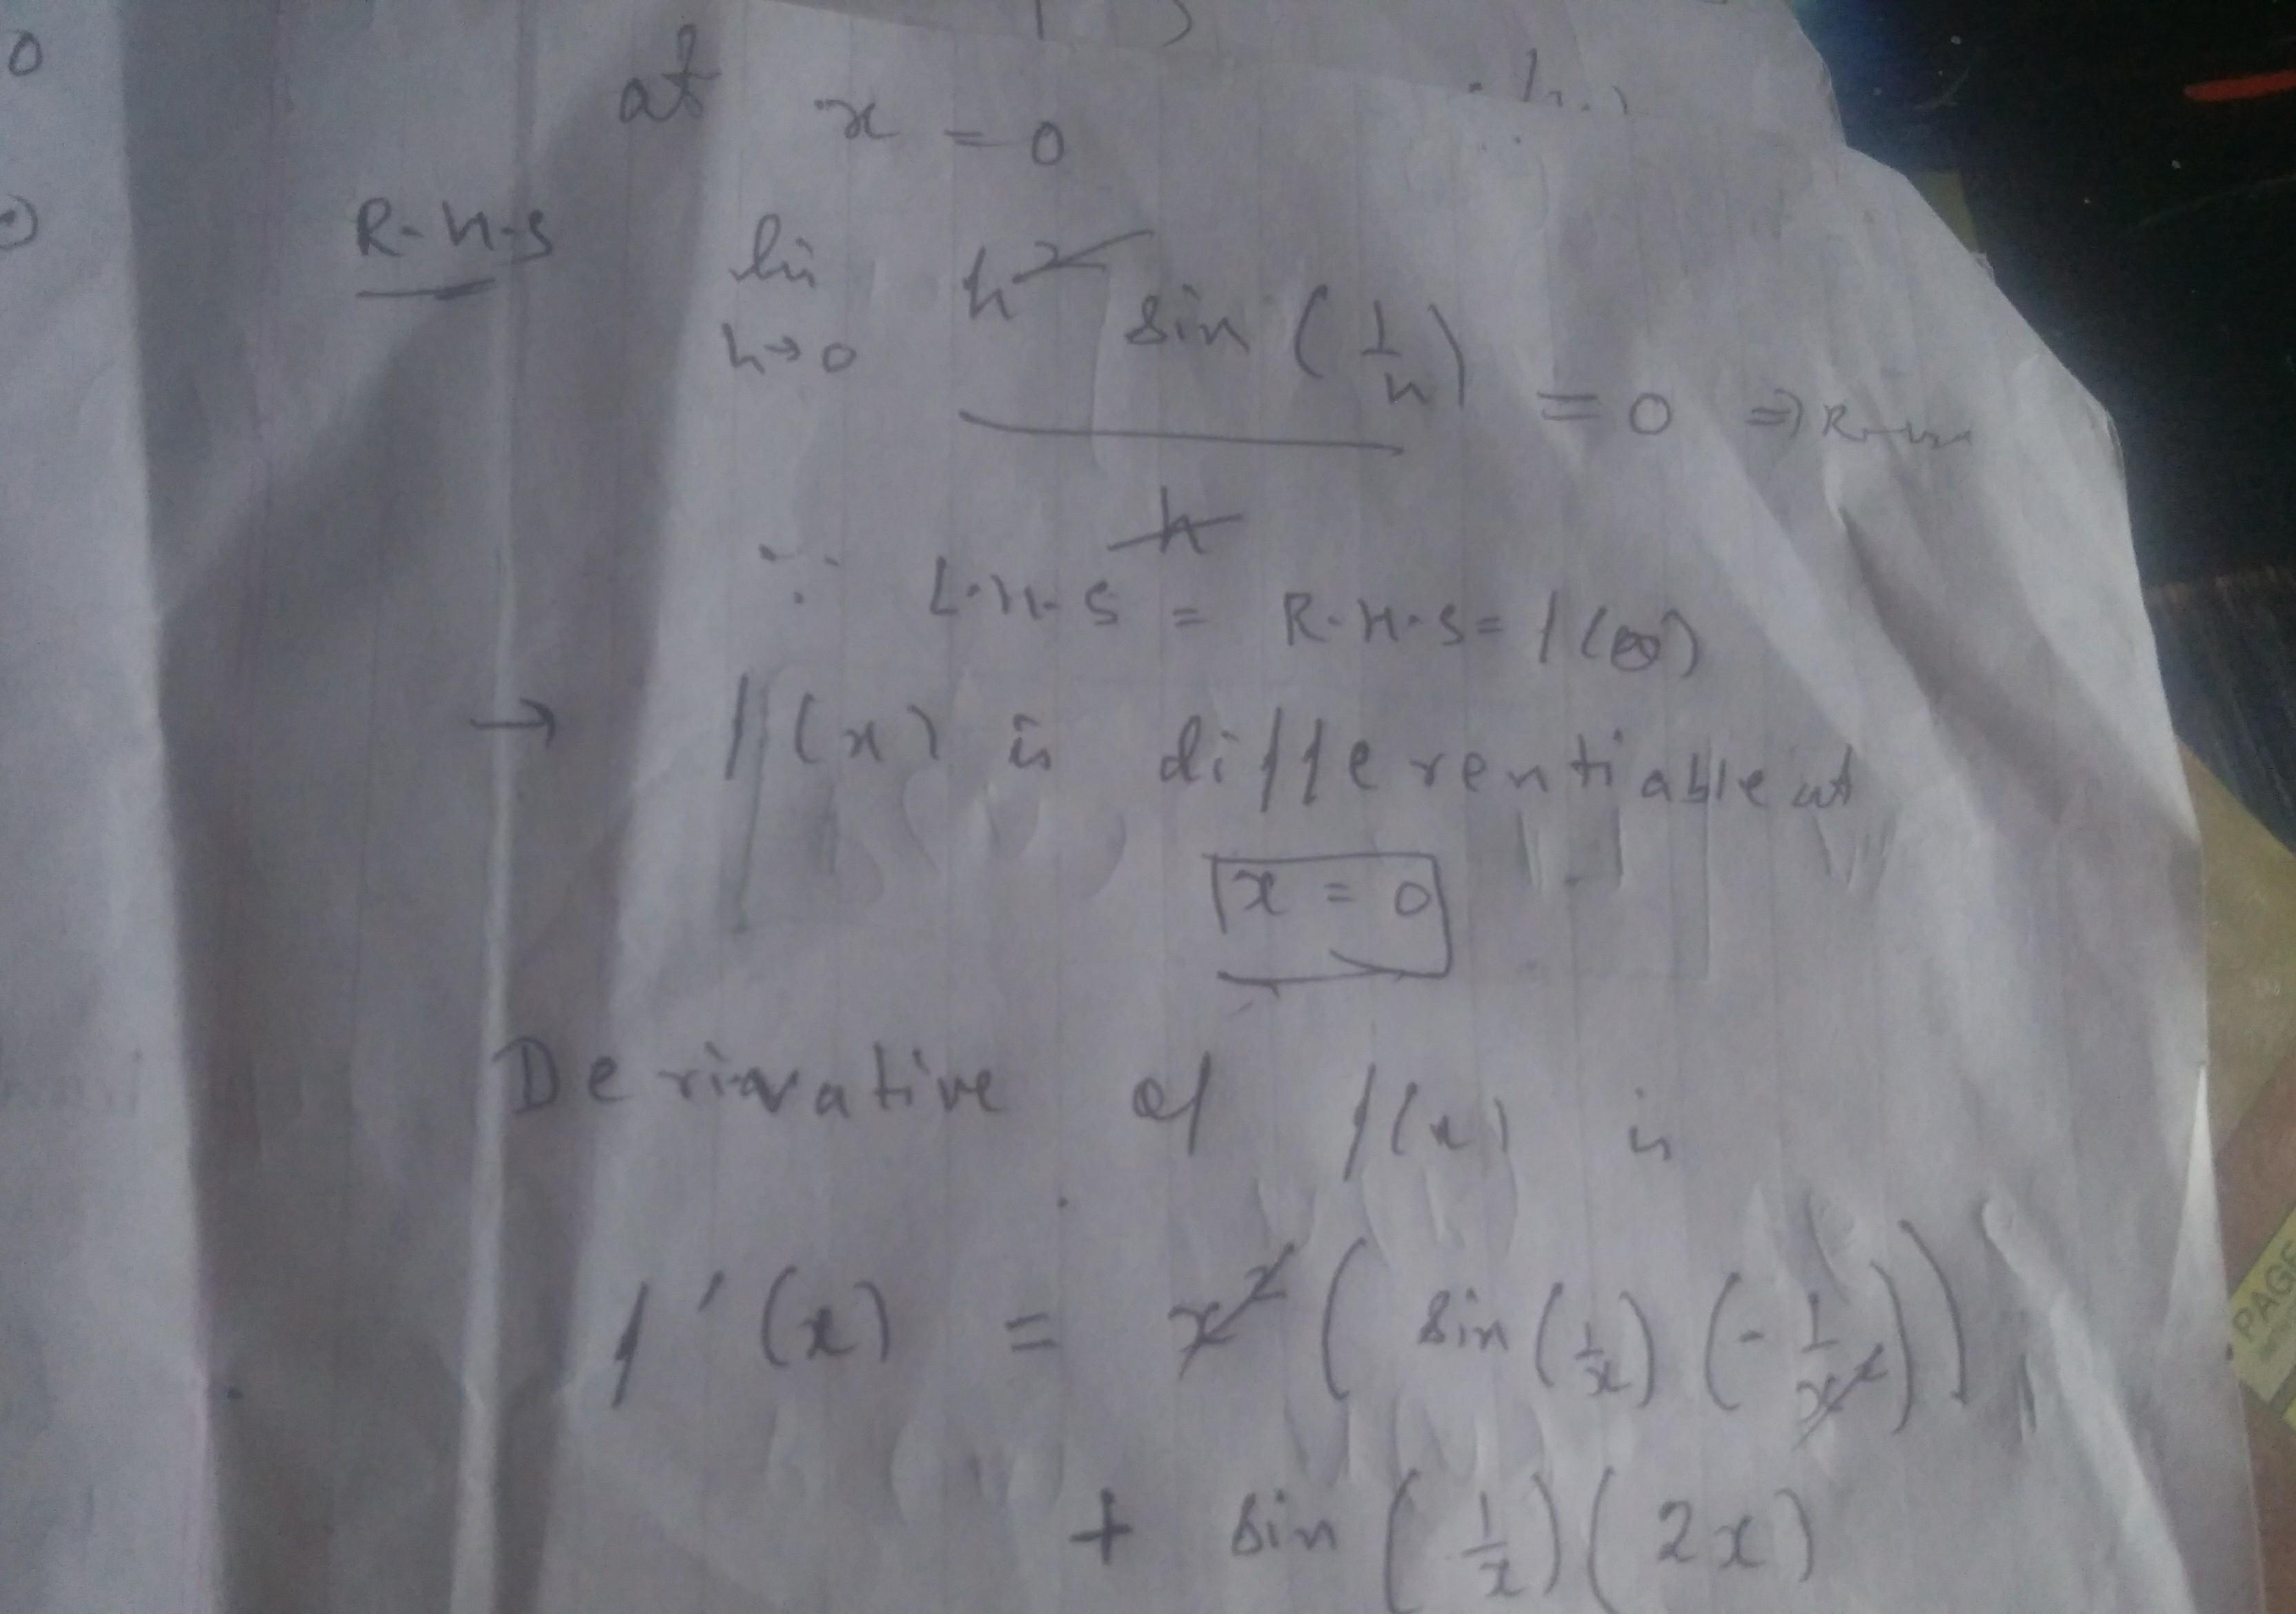 0
at x = 0
R-H-S lim h→0 h² sin (1/h) / h = 0 ⇒
∵ L.H.S = R.H.S = f(0)
→ f(x) is differentiable at
x = 0
Derivative of f(x) is
f'(x) = x² ( sin (1/x) (- 1/x²) )
+ sin (1/x) (2x)
PAGE